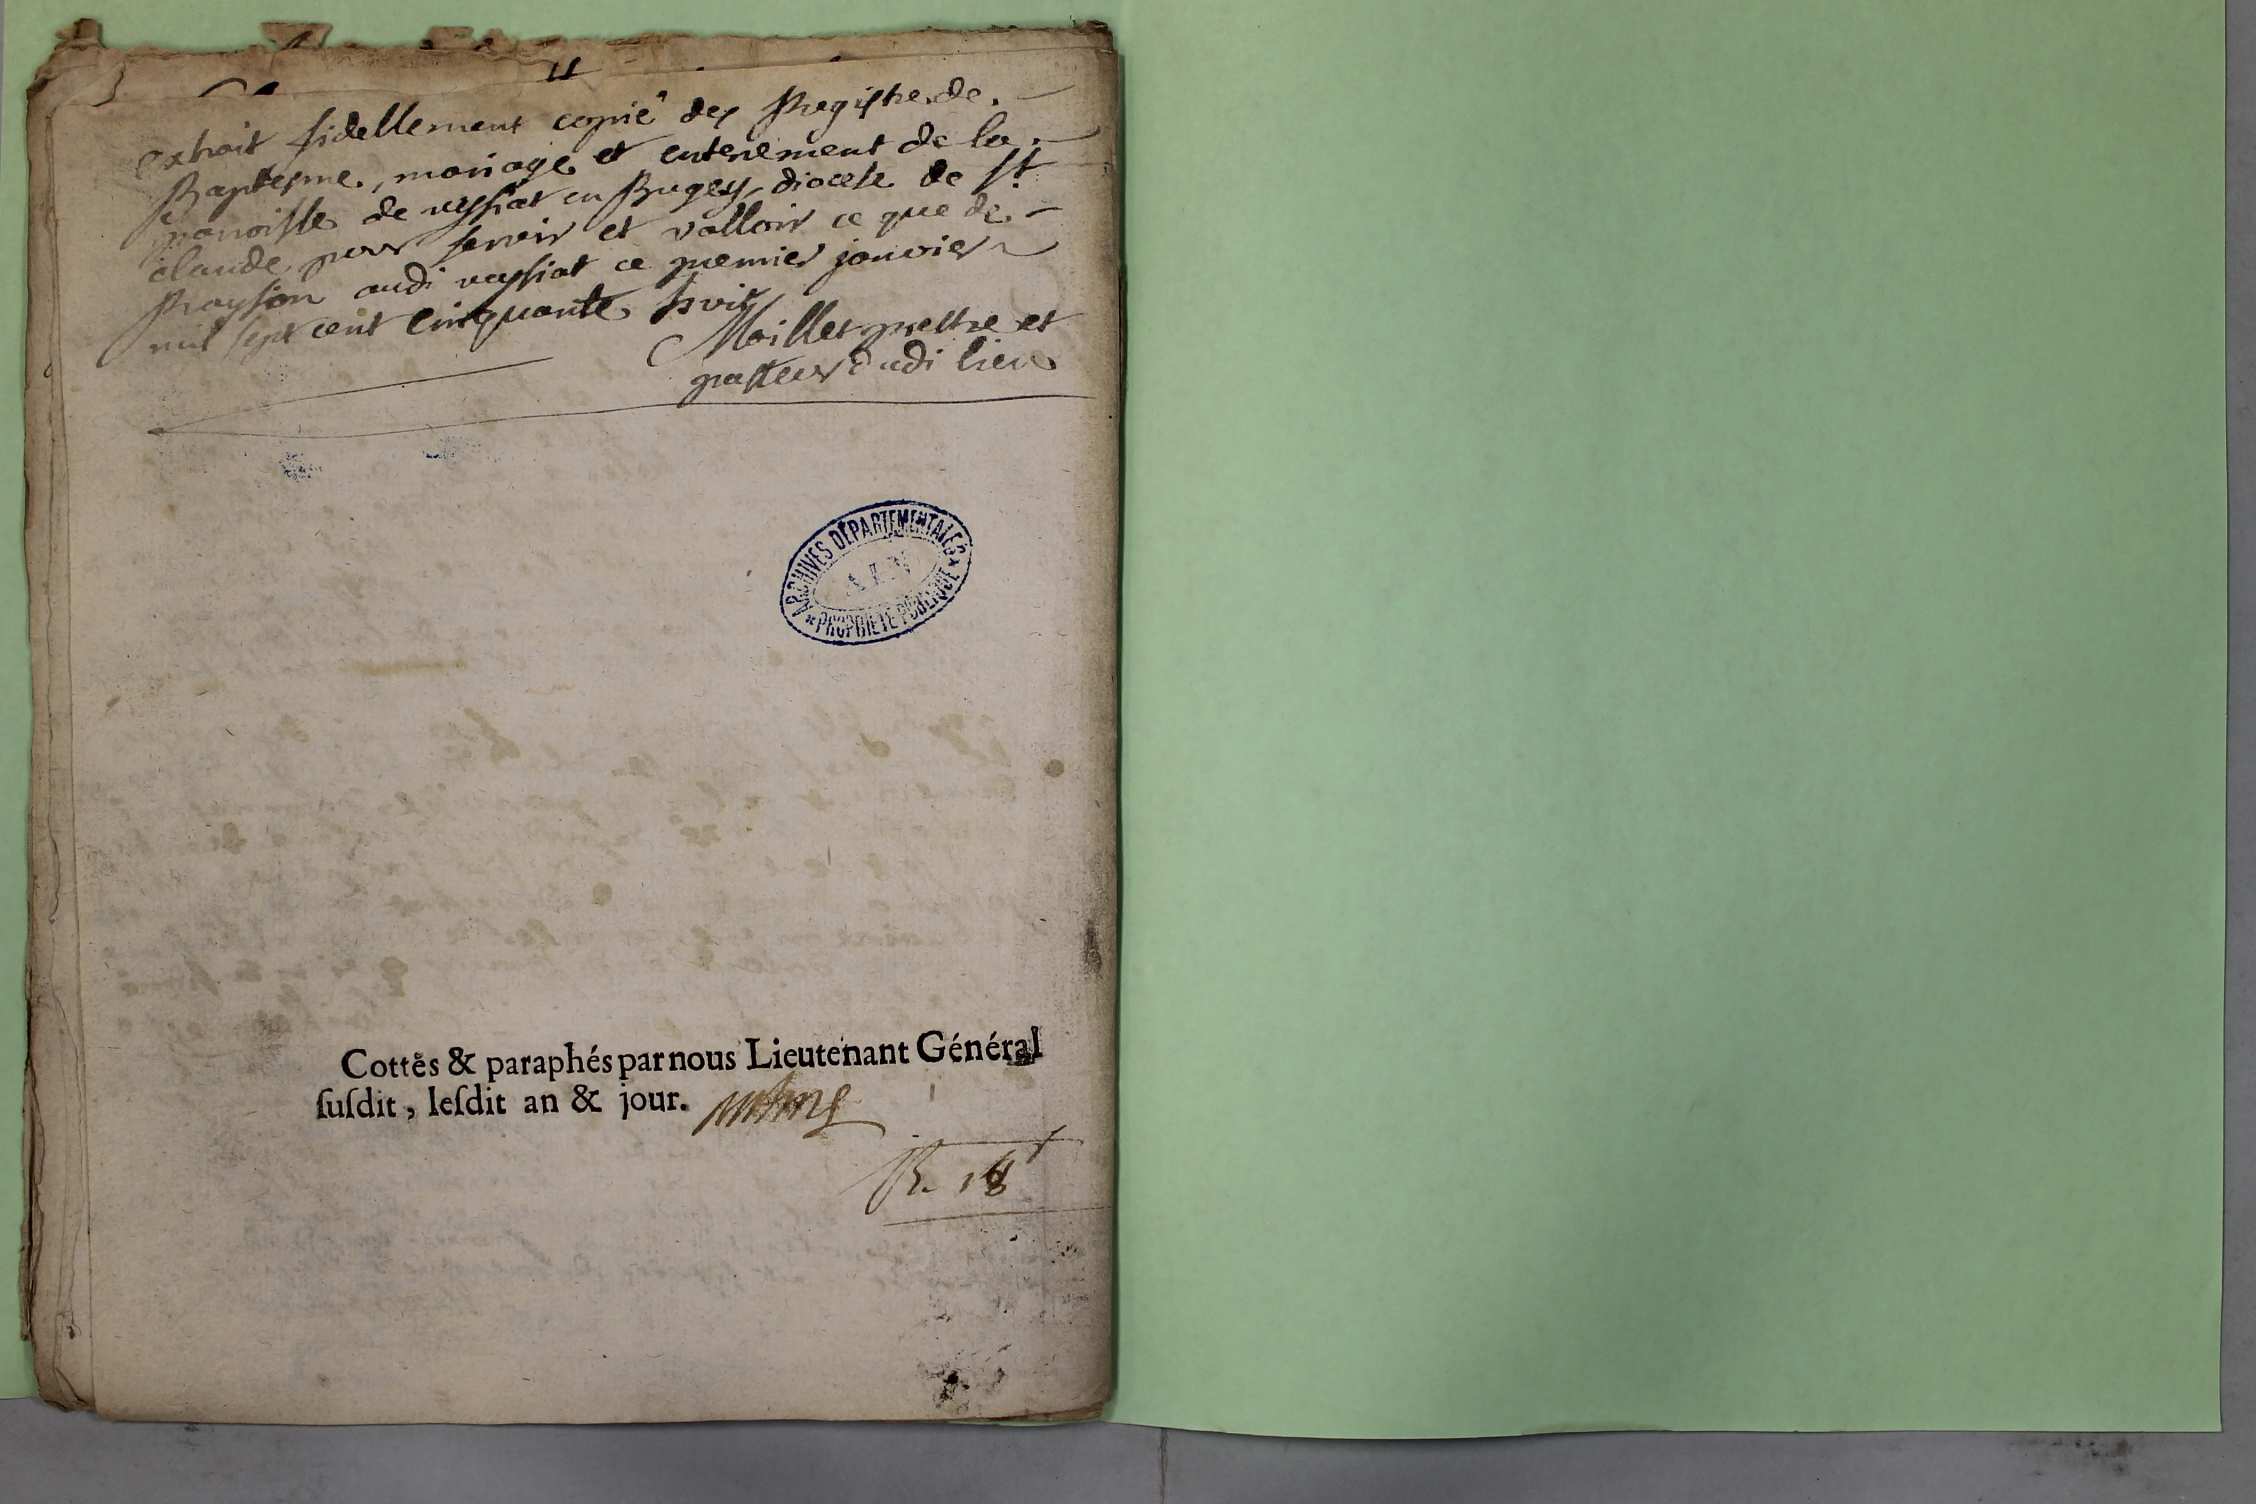 extrait fidellement copié des Registre de
Baptesme, mariage et enterement de la
paroisse de veyssiat en Bugey, diocese de St
claude pour servir et valloir ce que de
Rayson audi veyssiat ce premier janvier
mil sept cent cinquante huit
Maillet prestre et
pasteur dudi lieu
ARCHIVES DÉPARTEMENTALES
AIN
PROPRIÉTÉ PUBLIQUE
Cottés & paraphés par nous Lieutenant Général
suſdit, leſdit an & jour.
R. 18